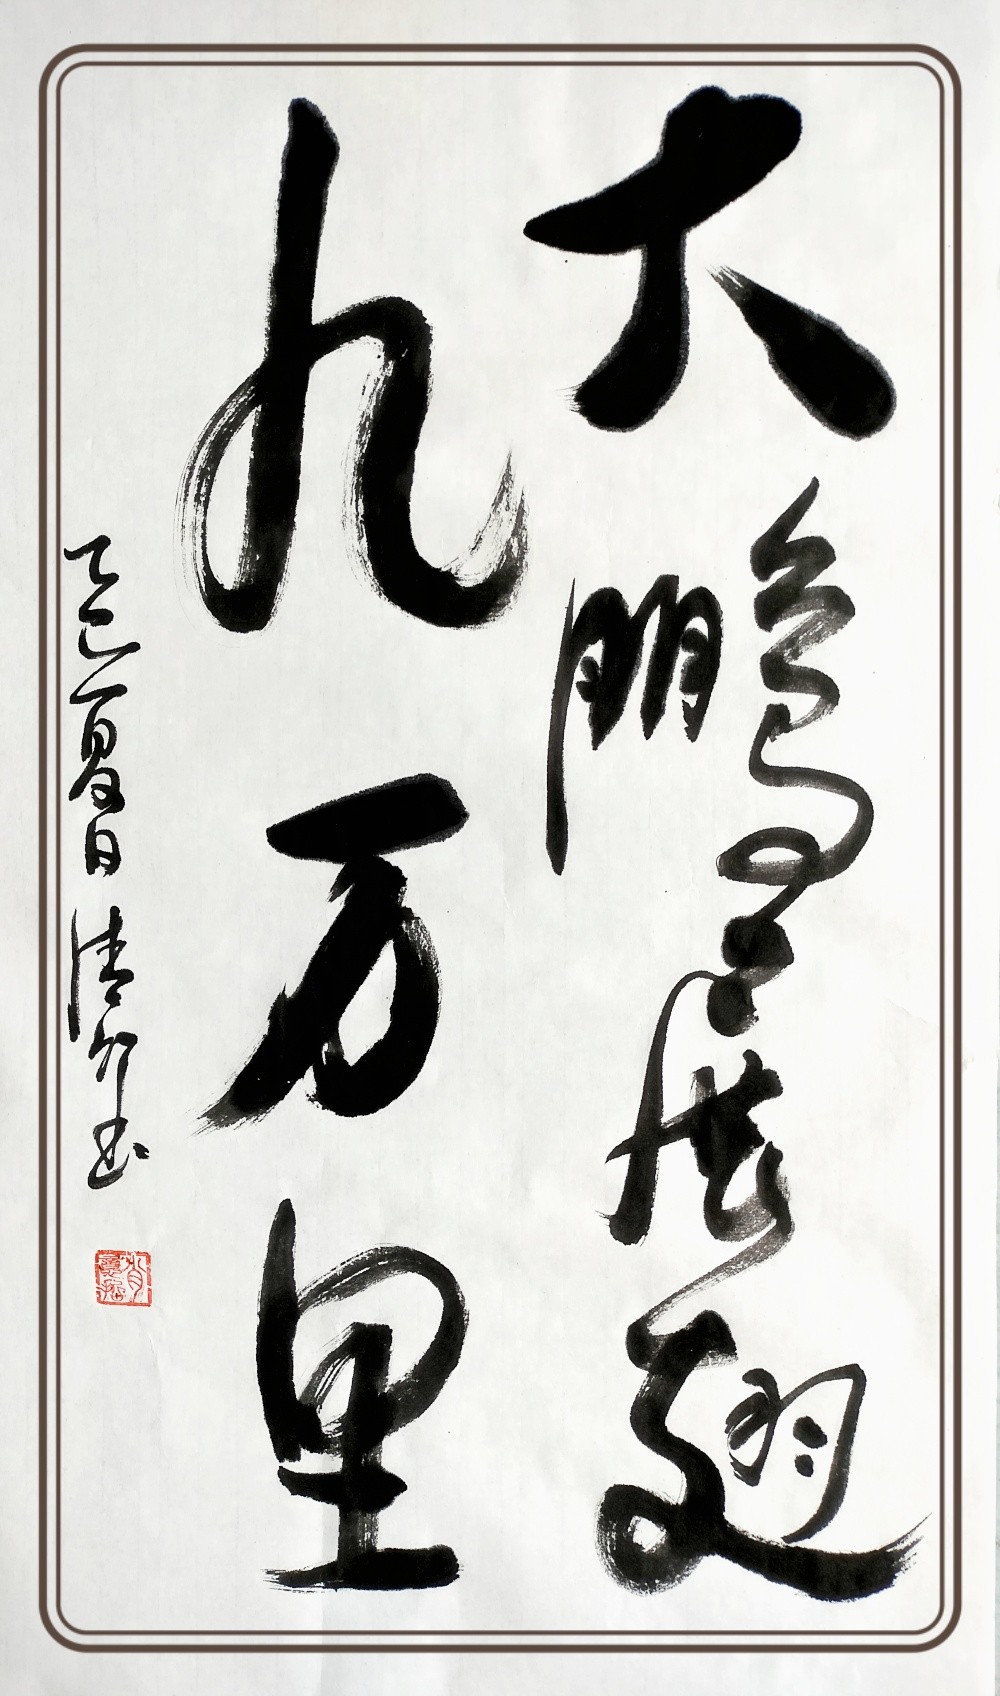 大鹏展翅
九万里
乙巳夏日清邨书